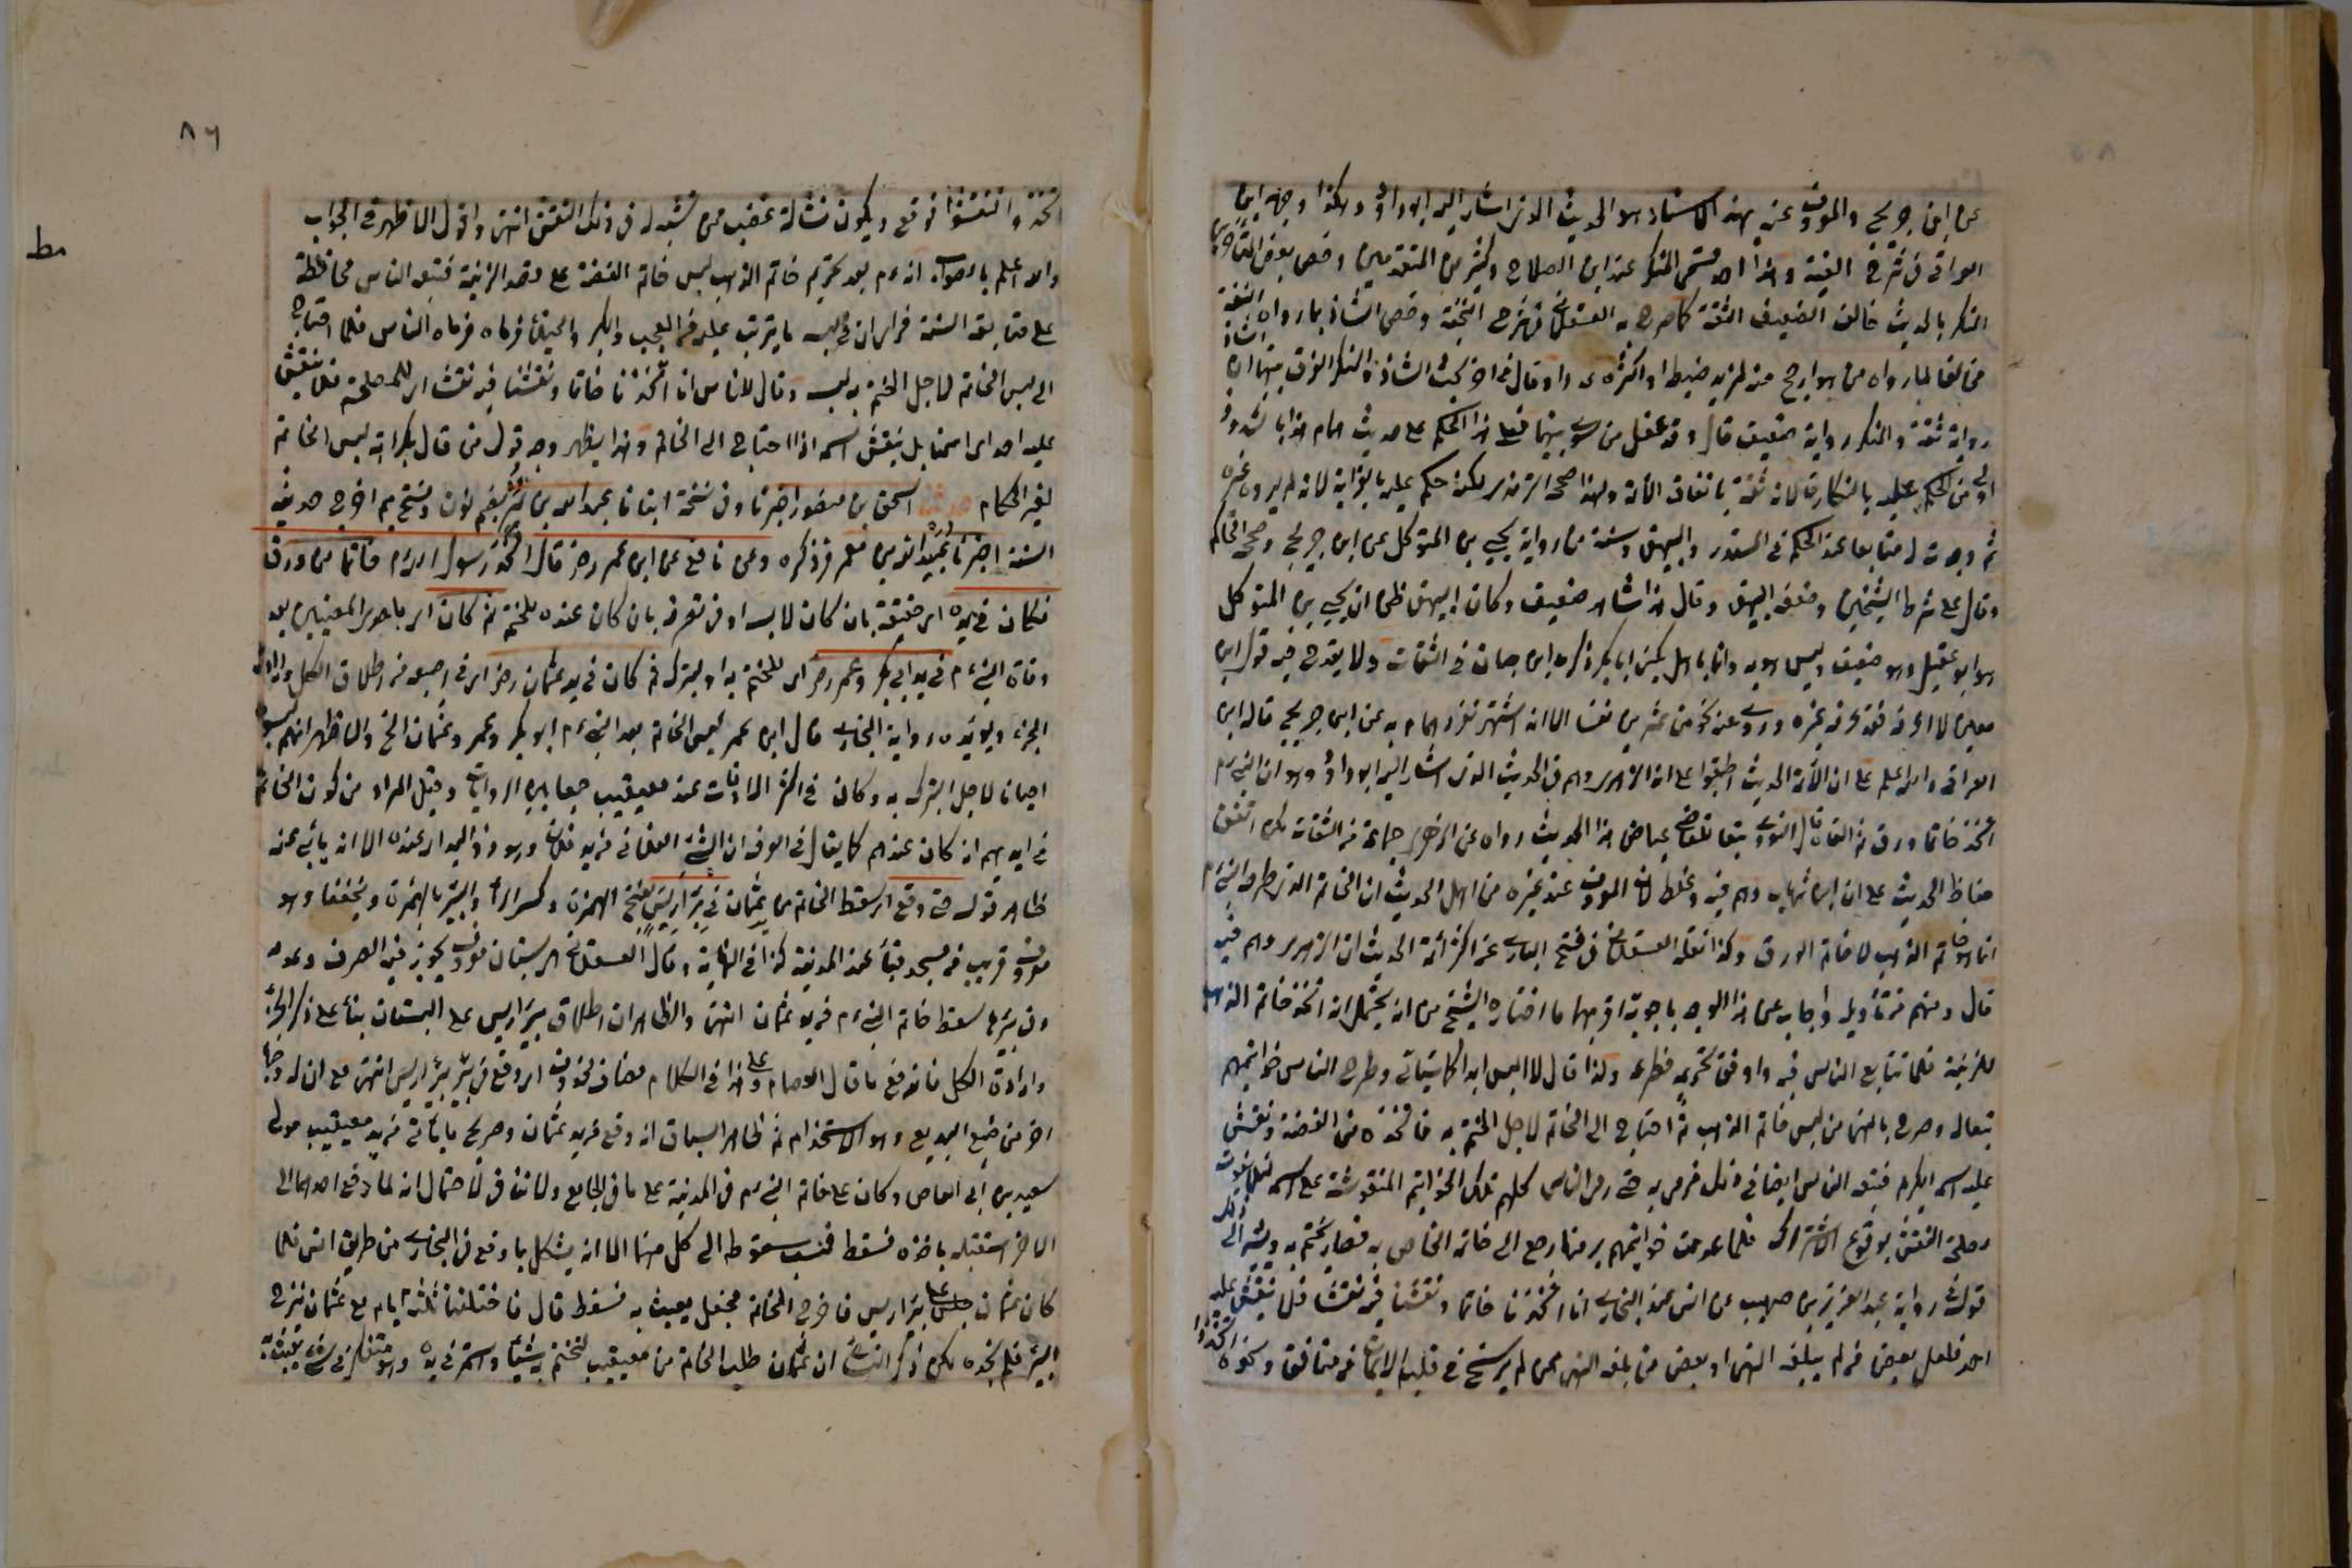 عن ابن جريج والمعروف عنه بهذا الاسناد هو الحديث الذي اشار اليه ابو داود وهكذا وجهه ابن
العراقي في شرح الفية وهذا احد قسمي المنكر عند ابن الصلاح وكثير من المتقدمين وخص بعض المتأخرين
المنكر بالحديث خالف الضعيف الثقة كما صرح به العسقلاني في شرح النخبة وخص الشاذ بما رواه الثقة
مخالفا لما رواه من هو ارجح منه لمزيد ضبط او اكثر عددا وقال في اخر بحث الشاذ والمنكر الفرق بينهما ان الشاذ
رواية ثقة والمنكر رواية ضعيف قال وقد غفل من سوى بينهما فعلى هذا الحكم على حديث همام هذا بالشذوذ
اولى من الحكم عليه بالنكارة لانه ثقة باتفاق الائمة ولهذا صححه الترمذي لكنه حكم عليه بالغرابة لانه لم يروه غيره
ثم وجدت له متابعا عند الحاكم في المستدرك والبيهقي وسننه من رواية يحيى بن المتوكل عن ابن جريج وصححه الحاكم
وقال على شرط الشيخين وضعفه البيهقي وقال هذا شاهد ضعيف وكان البيهقي ظن ان يحيى بن المتوكل
هو ابو عقيل وهو ضعيف وليس هو به وانما باهلي يكنى ابا بكر ذكره ابن حبان في الثقات ولا يقدح فيه قول ابن
معين لا اعرفه فقد عرفه غيره وروى عنه نحو من عشرين نفسا الا انه اشتهر تفرد همام به عن ابن جريج قاله ابن
العراقي والله اعلم على ان الائمة الحديث اطبقوا على ان الزهري وهم في الحديث الذي اشار اليه ابو داود وهو ان النبي عم
اتخذ خاتما من ورق ثم القاه قال النووي تبعا للقاضي عياض هذا الحديث رواه عن الزهري جماعة من الثقات لكن اتفق
حفاظ الحديث على ان ابن شهاب وهم فيه وغلط لان المعروف عند غيره من اهل الحديث ان الخاتم الذي طرحه النبي عم
انما هو خاتم الذهب لا خاتم الورق وكذا نقله العسقلاني في فتح الباري عن اكثر ائمة الحديث ان الزهري وهم فيه
قال ومنهم من تأوله واجاب عن هذا الوهم باجوبة اقربها ما اختاره الشيخ من انه يحتمل انه اتخذ خاتم الذهب
للزينة فلما تتابع الناس فيه ووافق تحريمه فطرحه ولذا قال لا البس ابدا كما سيأتي وطرح الناس خواتيمهم
تبعا له وصرح بالنهي عن لبس خاتم الذهب ثم احتاج الى الخاتم لاجل الختم به فاتخذه من الفضة ونقش
عليه اسمه الكريم فتبعه الناس ايضا في ذلك فرمى به حتى رمى الناس كلهم تلك الخواتيم المنقوشة على اسمه لئلا يفوت
مصلحة النقش بوقوع الاشتراك فلما عدمت خواتيمهم برميها رجع الى خاتمه الخاص به فصار يختم به ويشير الى ذلك
قوله في رواية عبد العزيز بن صهيب عن انس عند البخاري انا اتخذنا خاتما ونقشنا فيه نقشا فلا ينقش عليه
احد فلعل بعض من لم يبلغه النهي او بعض من بلغه النهي ممن لم يرسخ في قلبه الايمان من منافق ونحوه اتخذوا
٨٦
اتخذ وانتقشوا فوقع ويكون نشأ له غضب ممن تشبه له في ذلك النقش انتهى واقول الاظهر في الجواب
والله اعلم بالصواب انه عم بعد تحريم خاتم الذهب لبس خاتم الفضة على قصد الزينة فتبعه الناس محافظة
على متابعة السنة فرأى ان في لبسه ما يترتب عليه من العجب والكبر والخيلاء فرماه فرماه الناس فلما احتاج
الى لبس الخاتم لاجل الختم به لبسه وقال للناس انا اتخذنا خاتما ونقشنا فيه نقشا اي للمصلحة فلا ينقش
عليه احد اي اسمنا بل ينقش اسمه اذا احتاج الى الخاتم وبهذا يظهر وجه قول من قال بكراهة لبس الخاتم
لغير الحكام حدثنا اسحق بن منصور اخبرنا وفي نسخة انبانا عبد الله بن نمير بضم نون وفتح ميم اخرج حديثه
الستة اخبرنا عبيد الله بن عمر مر ذكره وعن نافع عن ابن عمر رضه قال اتخذ رسول الله عم خاتما من ورق
فكان في يده اي حقيقة بان كان لابسه او في تصرفه بان كان عنده للختم ثم كان اي باحد المعنيين بعد
وفاة النبي عم في يد ابي بكر وعمر رضه اي للختم به او للتبرك ثم كان في يد عثمان رضه اي في اصبعه من اطلاق الكل وارادة
الجزء ويؤيده رواية البخاري قال ابن عمر لبس الخاتم بعد النبي عم ابو بكر وعمر وعثمان الخ والاظهر انهم لبسوه
احيانا لاجل التبرك به وكان في اكثر الاوقات عند معيقيب جمعا بين الروايات وقيل المراد من كون الخاتم
في ايديهم انه كان عندهم كما يقال في العرف ان الشئ الفلاني في يد فلان وهو ذو اليد اي عنده الا انه يأبى عنه
ظاهر قوله حتى وقع اي سقط الخاتم من عثمان في بئر اريس بفتح الهمزة وكسر الراء والبئر بالهمزة ويخفف وهو
معروف قريب من مسجد قباء عند المدينة كذا في النهاية وقال العسقلاني هي بستان معروف يجوز فيه الصرف وعدمه
وفي بئرها سقط خاتم النبي عم من يد عثمان انتهى والظاهر ان اطلاق بئر اريس على البستان بناء على ذكر الجزء
وارادة الكل فاندفع ما قال العصام وعلى هذا في الكلام مضاف محذوف اي وقع في بئر بئر اريس انتهى مع ان له وجها
اخر من ضيع البديع وهو الاستخدام ثم ظاهر السياق انه وقع من يد عثمان وصريح ما يأتي من يد معيقيب مولى
سعيد بن ابي العاص وكان على خاتم النبي عم في المدينة على ما في الجامع ولا تنافي لاحتمال انه لما دفع احدهما الى
الاخر استقبله باخذه فسقط فنسب سقوطه الى كل منهما الا انه يشكل بما وقع في البخاري من طريق انس فلما
كان عثمان جلس على بئر اريس فاخرج الخاتم فجعل يعبث به فسقط قال فاختلفنا ثلثة ايام مع عثمان ننزح
البئر فلم نجده لكن ذكر النسائي ان عثمان طلب الخاتم من معيقيب ليختم به شيئا واستمر في يده وهو متفكر في شئ يعبث به
مط